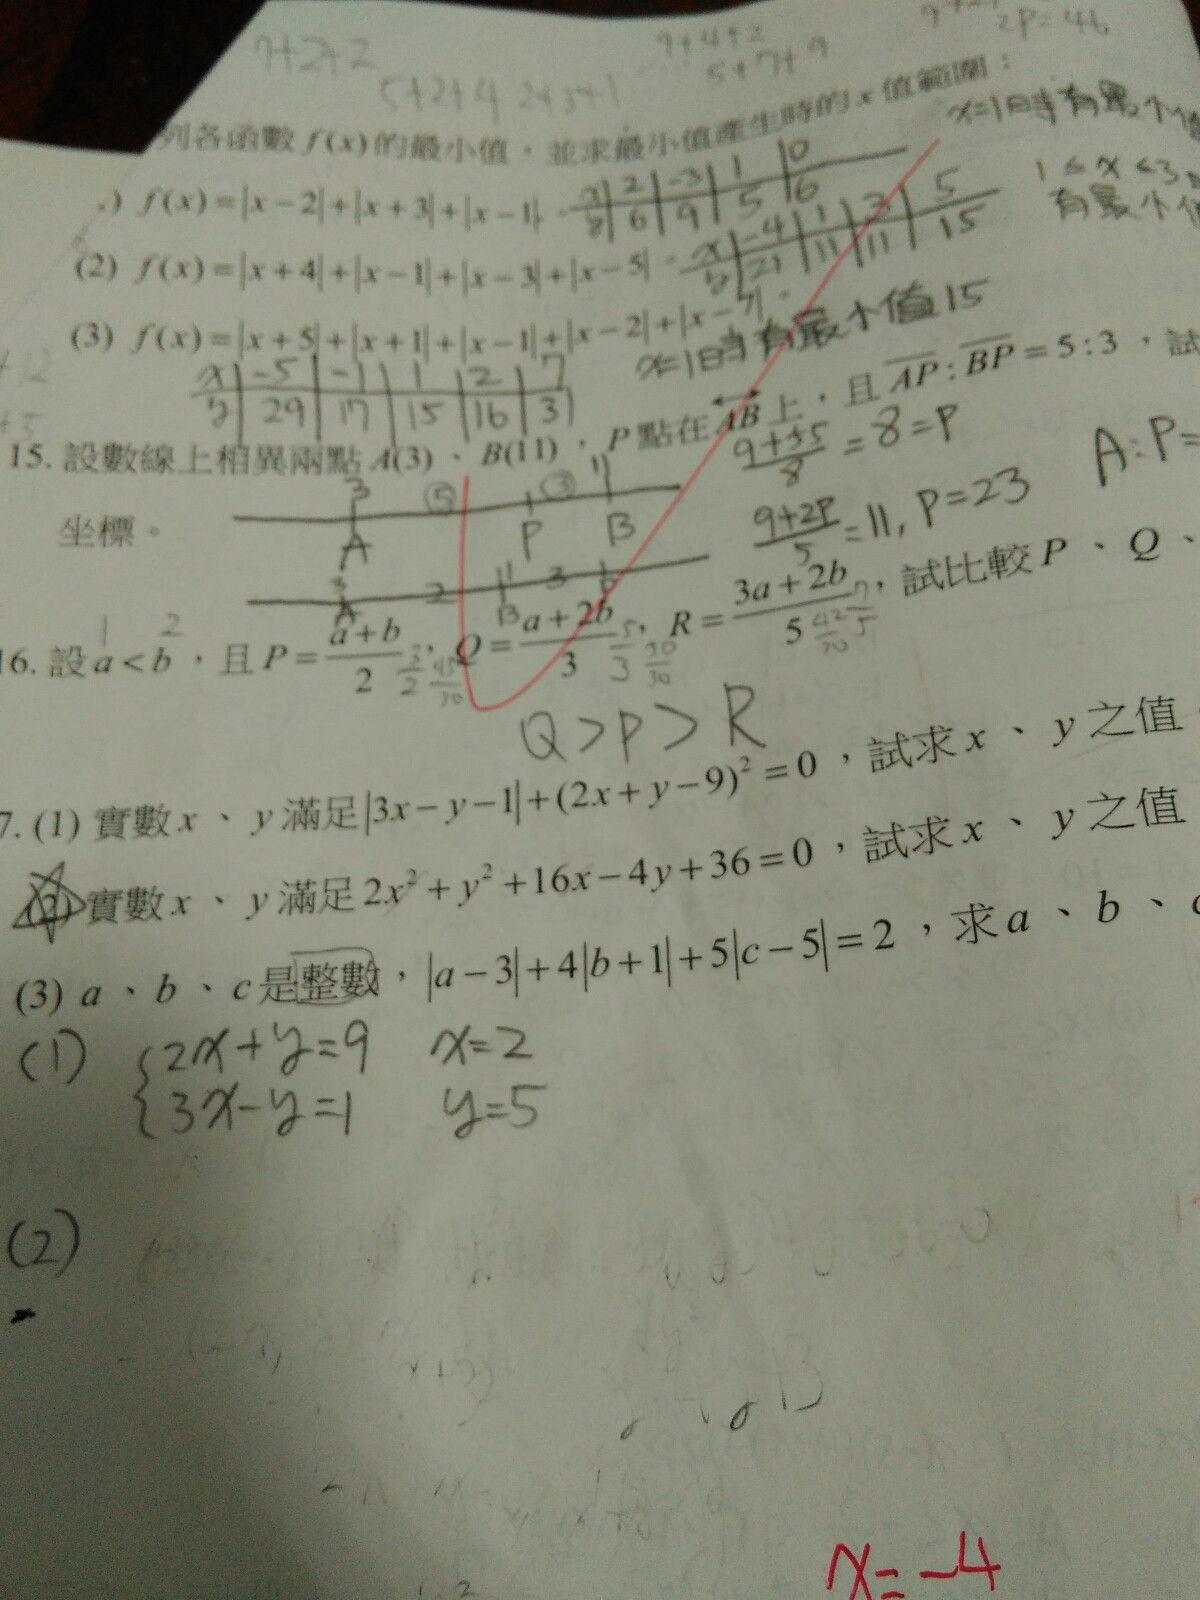 9+2+2
5+2+4 2+3+1
9+4+2
5+7+9
2P=46
列各函數 f(x) 的最小值，並求最小值產生時的 x 值範圍：
x=1時有最小值
1≤x≤3
有最小值
) f(x)=|x−2|+|x+3|+|x−1|
x 2 -3 1 0
y 6 9 5 6
(2) f(x)=|x+4|+|x−1|+|x−3|+|x−5|
x -4 1 3 5
y 21 11 11 15
(3) f(x)=|x+5|+|x+1|+|x−1|+|x−2|+|x−7|.
x=1時有最小值15
x -5 -1 1 2 7
y 29 17 15 16 31
15. 設數線上相異兩點 A(3)、B(11)，P 點在 AB 上，且 AP:BP=5:3，試
坐標。
3 ⑤ ③ 11
A P B
9+55/8=8=P
A:P=
9+2P/5=11, P=23
3 2 11 3
A B P
16. 設 a<b，且 P=a+b/2，Q=a+2b/3，R=3a+2b/5，試比較 P、Q、
1 2
3/2 45/30 5/3 50/30 7/5 42/30
Q>P>R
7. (1) 實數 x、y 滿足 |3x−y−1|+(2x+y−9)²=0，試求 x、y 之值
(2) 實數 x、y 滿足 2x²+y²+16x−4y+36=0，試求 x、y 之值
(3) a、b、c 是整數，|a−3|+4|b+1|+5|c−5|=2，求 a、b、c
(1) {2x+y=9 x=2
3x-y=1 y=5
(2)
x=-4